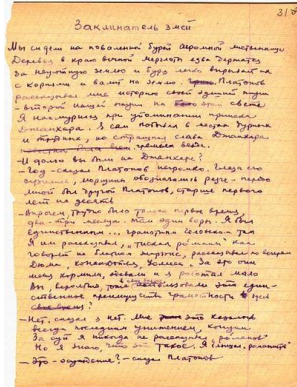 Заклинатель змей
Мы сидели на поваленной бурей огромной лиственнице
Деревья в краю вечной мерзлоты едва держатся
за неуютную землю и буря легко вырывает их
с корнями и валит на землю. Платонов
рассказывал мне историю своей здешней жизни
второй нашей жизни на этом свете
Я нахмурился при упоминании прииска
Джанхара. Я сам побывал в местах дурных
и трудных, но страшная слава Джанхары
гремела везде.
И долго вы были на Джанхаре?
– Год – сказал Платонов негромко. Глаза его
сузились, морщины обозначились резче – передо
мной был другой Платонов, старше первого
лет на десять
– Впрочем, трудно было только первое время,
два-три месяца. Там одни воры. Я был
единственным ... грамотным человеком там
Я им рассказывал, „тискал романы" как
говорят на блатном жаргоне, рассказывал
Дюма, Конан-Дойля, Уоллеса. За это они
меня кормили, одевали и я работал мало
Вы, вероятно, тоже использовали это един-
ственное преимущество грамотности здесь
– Нет, сказал я нет. Мне это казалось
всегда последним унижением, концом.
За суп я никогда не рассказывал „романов"
Но я знаю, что это такое. Я слышал „романистов"
– Это – осуждение? – сказал Платонов